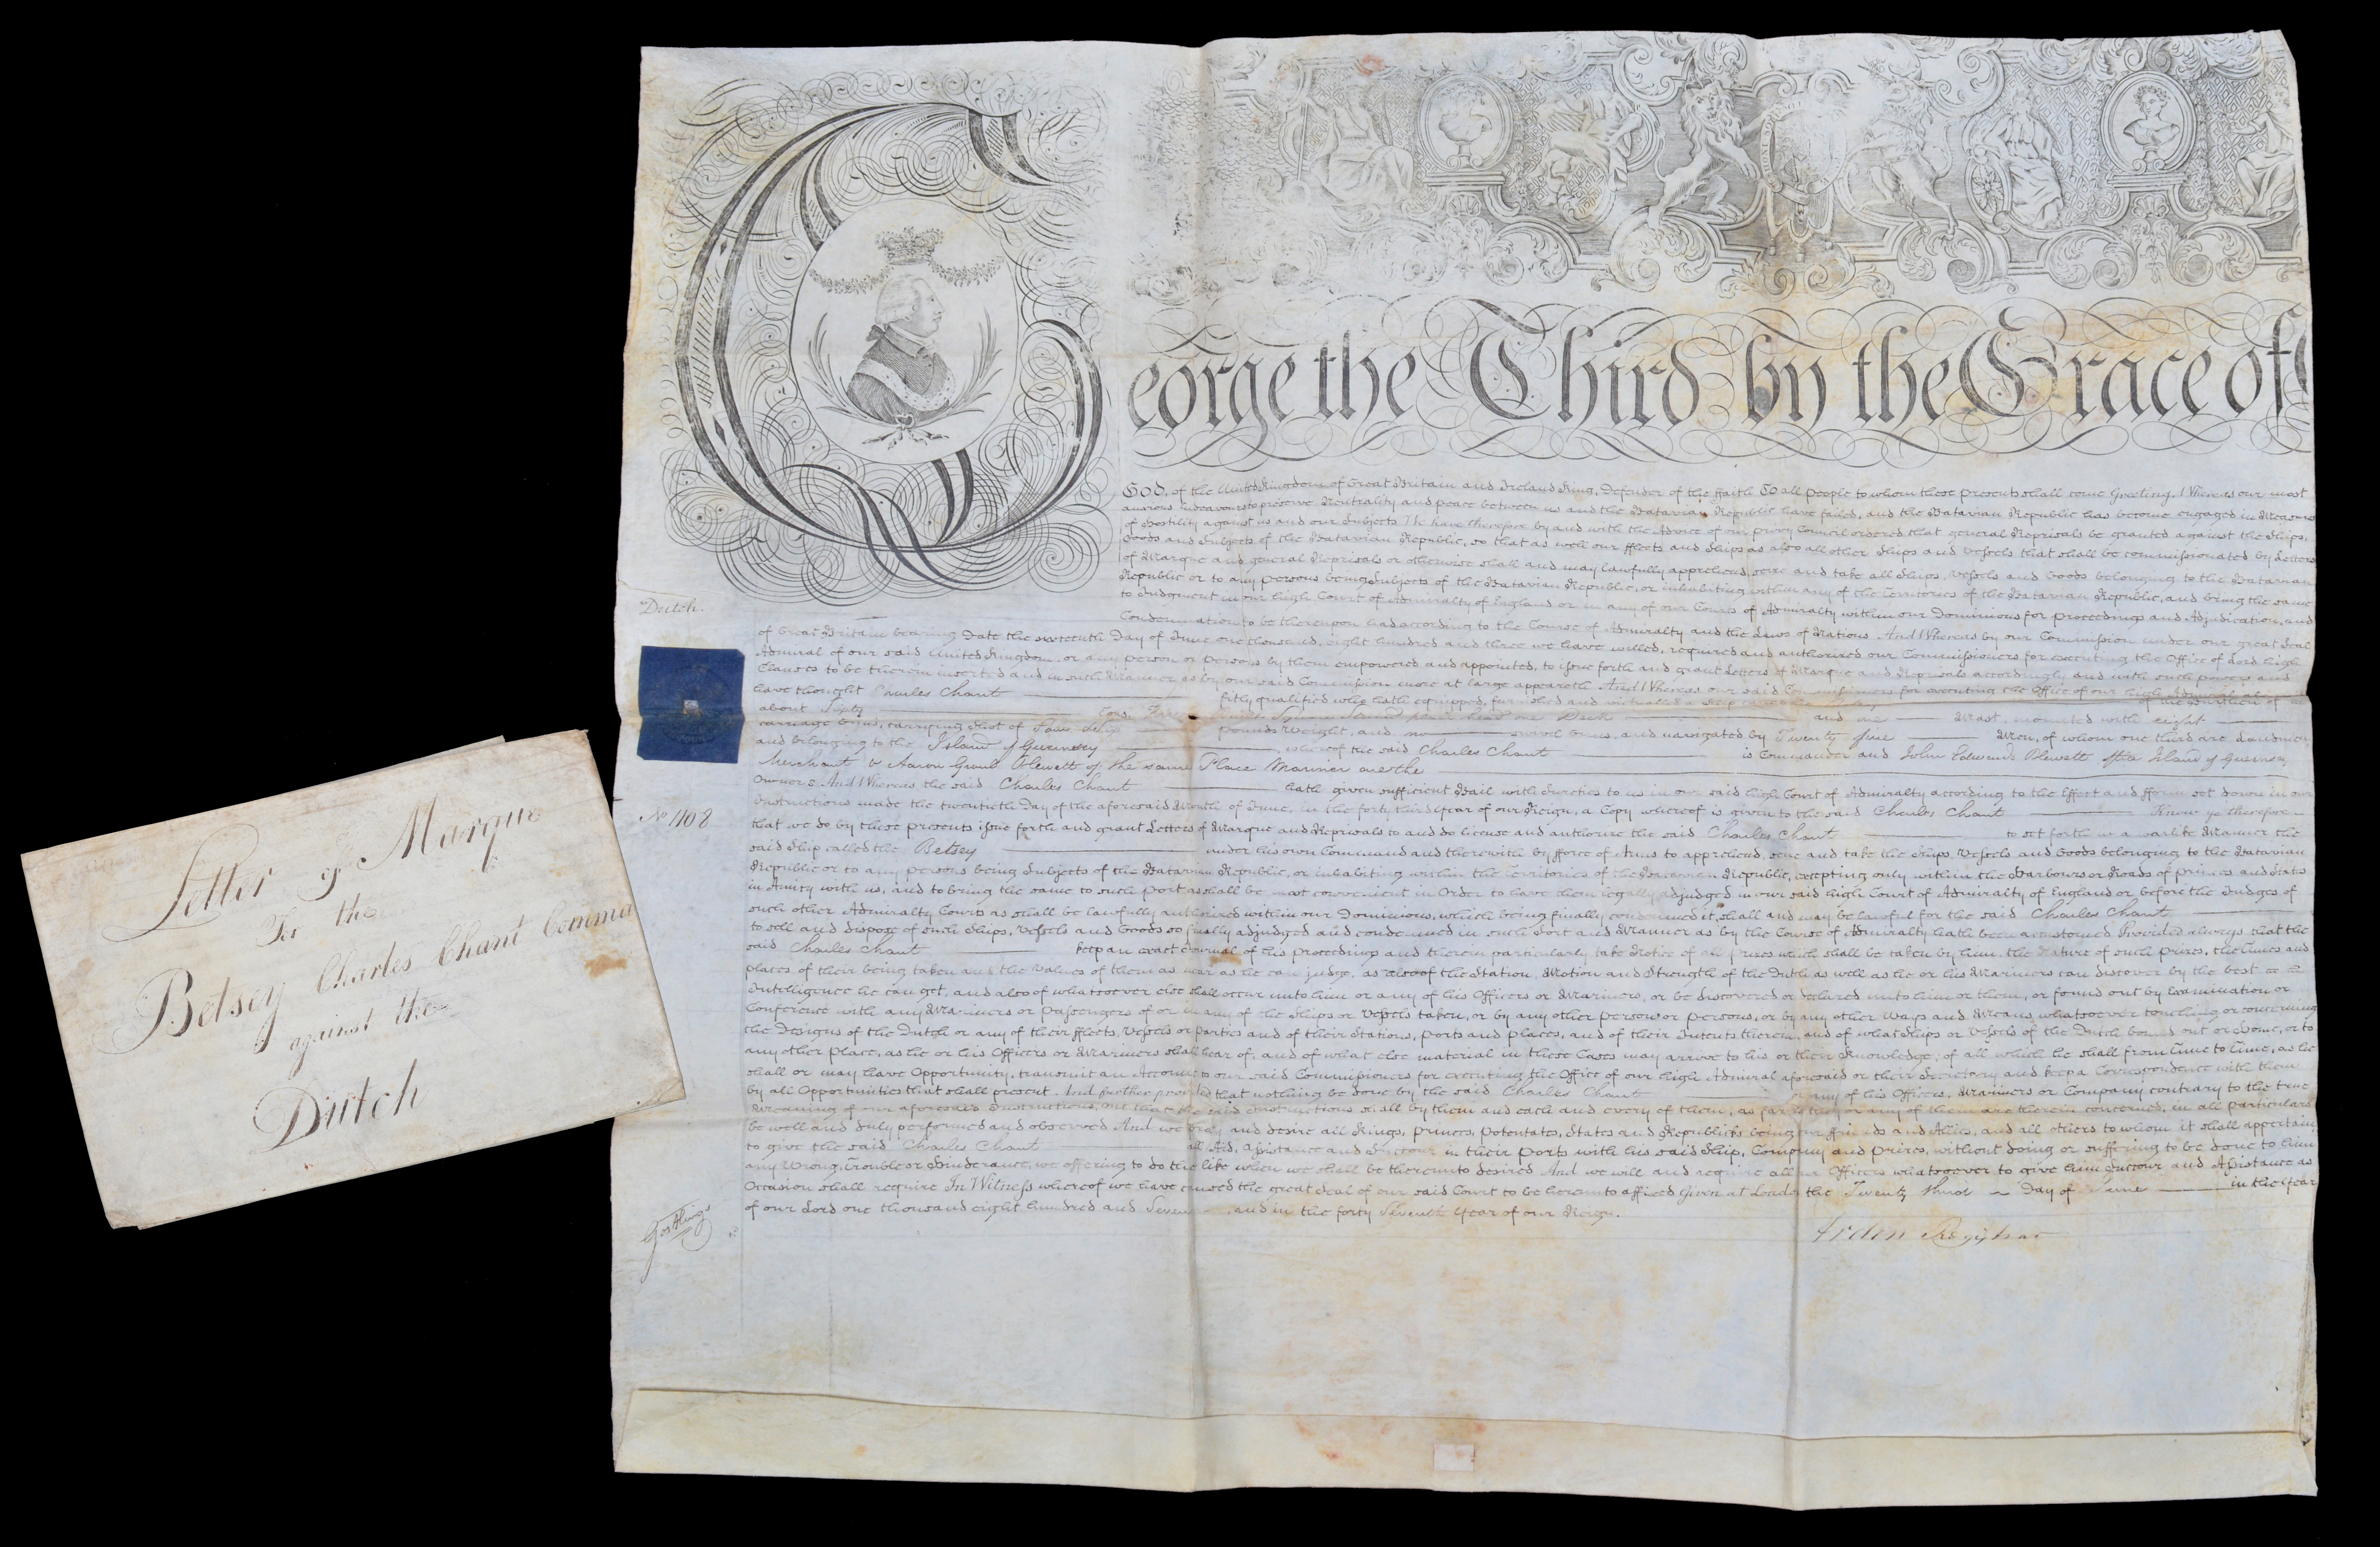 Letter of Marque
For the
Betsey Charles Chant Comma
against the
Dutch
George the Third by the Grace of
GOD, of the United Kingdom of Great Britain and Ireland King, Defender of the Faith To all people to whom these presents shall come Greeting. Whereas our most
anxious Endeavours to preserve Neutrality and peace between us and the Batavian Republic have failed, and the Batavian Republic has become engaged in Measures
of Hostility against us and our Subjects We have therefore by and with the Advice of our privy Council ordered that general Reprisals be granted against the Ships,
Goods and Subjects of the Batavian Republic, so that as well our ffleets and Ships as also all other Ships and Vessels that shall be commissionated by Letters
of Marque and general Reprisals or otherwise shall and may lawfully apprehend, seize and take all Ships, Vessels and Goods belonging to the Batavian
Republic or to any persons being Subjects of the Batavian Republic, or inhabiting within any of the Territories of the Batavian Republic, and bring the same
to Judgment in our high Court of Admiralty of England or in any of our Courts of Admiralty within our Dominions for proceedings and Adjudication, and
Dutch.
Condemnation to be thereupon had according to the Course of Admiralty and the Laws of Nations. And Whereas by our Commission under our great Seal
of Great Britain bearing Date the sixteenth Day of June one thousand, eight hundred and three we have willed, required and authorized our Commissioners for executing the Office of Lord high
Admiral of our said United Kingdom, or any person or persons by them empowered and appointed, to issue forth and grant Letters of Marque and Reprisals accordingly and with such powers and
Clauses to be therein inserted and in such Manner as by our said Commission more at large appeareth And Whereas our said Commissioners for executing the Office of our high Admiral
have thought Charles Chant fitly qualified who hath equipped, furnished and victualled a Ship called the of the Burthen of
about Sixty Tons, Square and one Mast, mounted with eight
carriage Guns, carrying Shot of Four pounds weight, and no swivel Guns, and navigated by Twenty five Men, of whom one third are Landmen
and belonging to the Island of Guernsey whereof the said Charles Chant is Commander and John Edward Blewett of the Island of Guernsey
Merchant & Aaron Blewett of the same Place Mariner are the
Owners And Whereas the said Charles Chant hath given sufficient Bail with Sureties to us in our said high Court of Admiralty according to the Effect and fform set down in our
Instructions made the twentieth Day of the aforesaid Month of June, in the forty third Year of our Reign, a Copy whereof is given to the said Charles Chant Know ye therefore
No 1108
that we do by these presents issue forth and grant Letters of Marque and Reprisals to and do license and authorize the said Charles Chant to set forth in a warlike Manner the
said Ship called the Betsey under his own Command and therewith by fforce of Arms to apprehend, seize and take the Ships, Vessels and Goods belonging to the Batavian
Republic or to any persons being Subjects of the Batavian Republic, or inhabiting within the Territories of the Batavian Republic, excepting only within the Harbours or Roads of princes and States
in Amity with us, and to bring the same to such port as shall be most convenient in Order to have them legally adjudged in our said high Court of Admiralty of England or before the Judges of
such other Admiralty Courts as shall be lawfully authorized within our Dominions, which being finally condemned it shall and may be lawful for the said Charles Chant
to sell and dispose of such Ships, Vessels and Goods so finally adjudged and condemned in such Sort and Manner as by the Course of Admiralty hath been accustomed Provided always that the
said Charles Chant keep an exact Journal of his proceedings and therein particularly take Notice of all prizes which shall be taken by him, the Nature of such prizes, the Times and
places of their being taken and the Values of them as near as he can judge, as also of the Station, Motion and Strength of the Dutch as well as he or his Mariners can discover by the best
Intelligence he can get, and also of whatsoever else shall occur unto him or any of his Officers or Mariners, or be discovered or declared unto him or them, or found out by Examination or
Conference with any Mariners or passengers of or in any of the Ships or Vessels taken, or by any other person or persons, or by any other Ways and Means whatsoever touching or concerning
the Designs of the Dutch or any of their ffleets, Vessels or parties and of their Stations, ports and places, and of their Intents therein, and of what Ships or Vessels of the Dutch bound out or Home, or to
any other place, as he or his Officers or Mariners shall hear of, and of what else material in these Cases may arrive to his or their Knowledge; of all which he shall from Time to Time, as he
shall or may have Opportunity, transmit an Account to our said Commissioners for executing the Office of our high Admiral aforesaid or their Secretary and keep a Correspondence with them
by all Opportunities that shall present. And further provided that nothing be done by the said Charles Chant or any of his Officers, Mariners or Company contrary to the true
Meaning of our aforesaid Instructions, but that the said Instructions shall by them and each and every of them, as far as they or any of them are therein concerned, in all particulars
be well and duly performed and observed And we pray and desire all Kings, princes, potentates, States and Republicks being our ffriends and Allies, and all others to whom it shall appertain
to give the said Charles Chant all Aid, Assistance and Succour in their ports with his said Ship, Company and prizes, without doing or suffering to be done to him
any Wrong, Trouble or Hinderance, we offering to do the like when we shall be thereunto desired And we will and require all our Officers whatsoever to give him Succour and Assistance as
Occasion shall require In Witness whereof we have caused the great Seal of our said Court to be hereunto affixed Given at London the Twenty third Day of June in the Year
of our Lord one thousand eight hundred and Seven and in the forty Seventh Year of our Reign.
Arden Registrar
Gostling